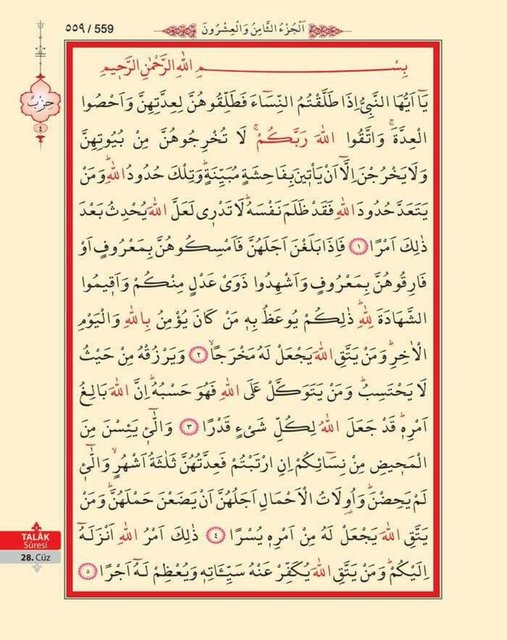 ٥٥٩ / 559
اَلْجُزْءُ الثَّامِنُ وَالْعِشْرُونَ
حِزْبٌ
٤
بِسْــــــــــــــمِ اللّٰهِ الرَّحْمٰنِ الرَّحٖيمِ
يَٓا اَيُّهَا النَّبِيُّ اِذَا طَلَّقْتُمُ النِّسَٓاءَ فَطَلِّقُوهُنَّ لِعِدَّتِهِنَّ وَاَحْصُوا
الْعِدَّةَۚ وَاتَّقُوا اللّٰهَ رَبَّكُمْۚ لَا تُخْرِجُوهُنَّ مِنْ بُيُوتِهِنَّ
وَلَا يَخْرُجْنَ اِلَّٓا اَنْ يَأْتٖينَ بِفَاحِشَةٍ مُبَيِّنَةٍؕ وَتِلْكَ حُدُودُ اللّٰهِؕ وَمَنْ
يَتَعَدَّ حُدُودَ اللّٰهِ فَقَدْ ظَلَمَ نَفْسَهُؕ لَا تَدْرٖي لَعَلَّ اللّٰهَ يُحْدِثُ بَعْدَ
ذٰلِكَ اَمْرًا ﴿١﴾ فَاِذَا بَلَغْنَ اَجَلَهُنَّ فَاَمْسِكُوهُنَّ بِمَعْرُوفٍ اَوْ
فَارِقُوهُنَّ بِمَعْرُوفٍ وَاَشْهِدُوا ذَوَيْ عَدْلٍ مِنْكُمْ وَاَقٖيمُوا
الشَّهَادَةَ لِلّٰهِؕ ذٰلِكُمْ يُوعَظُ بِهٖ مَنْ كَانَ يُؤْمِنُ بِاللّٰهِ وَالْيَوْمِ
الْاٰخِرِؕ وَمَنْ يَتَّقِ اللّٰهَ يَجْعَلْ لَهُ مَخْرَجًاۙ ﴿٢﴾ وَيَرْزُقْهُ مِنْ حَيْثُ
لَا يَحْتَسِبُؕ وَمَنْ يَتَوَكَّلْ عَلَى اللّٰهِ فَهُوَ حَسْبُهُؕ اِنَّ اللّٰهَ بَالِغُ
اَمْرِهٖؕ قَدْ جَعَلَ اللّٰهُ لِكُلِّ شَيْءٍ قَدْرًا ﴿٣﴾ وَالّٰٓـٖٔي يَئِسْنَ مِنَ
الْمَحٖيضِ مِنْ نِسَٓائِكُمْ اِنِ ارْتَبْتُمْ فَعِدَّتُهُنَّ ثَلٰثَةُ اَشْهُرٍۙ وَالّٰٓـٖٔي
لَمْ يَحِضْنَؕ وَاُولَاتُ الْاَحْمَالِ اَجَلُهُنَّ اَنْ يَضَعْنَ حَمْلَهُنَّؕ وَمَنْ
يَتَّقِ اللّٰهَ يَجْعَلْ لَهُ مِنْ اَمْرِهٖ يُسْرًا ﴿٤﴾ ذٰلِكَ اَمْرُ اللّٰهِ اَنْزَلَهُٓ
اِلَيْكُمْؕ وَمَنْ يَتَّقِ اللّٰهَ يُكَفِّرْ عَنْهُ سَيِّـَٔاتِهٖ وَيُعْظِمْ لَهُٓ اَجْرًا ﴿٥﴾
TALÂK
Sûresi
28. Cüz